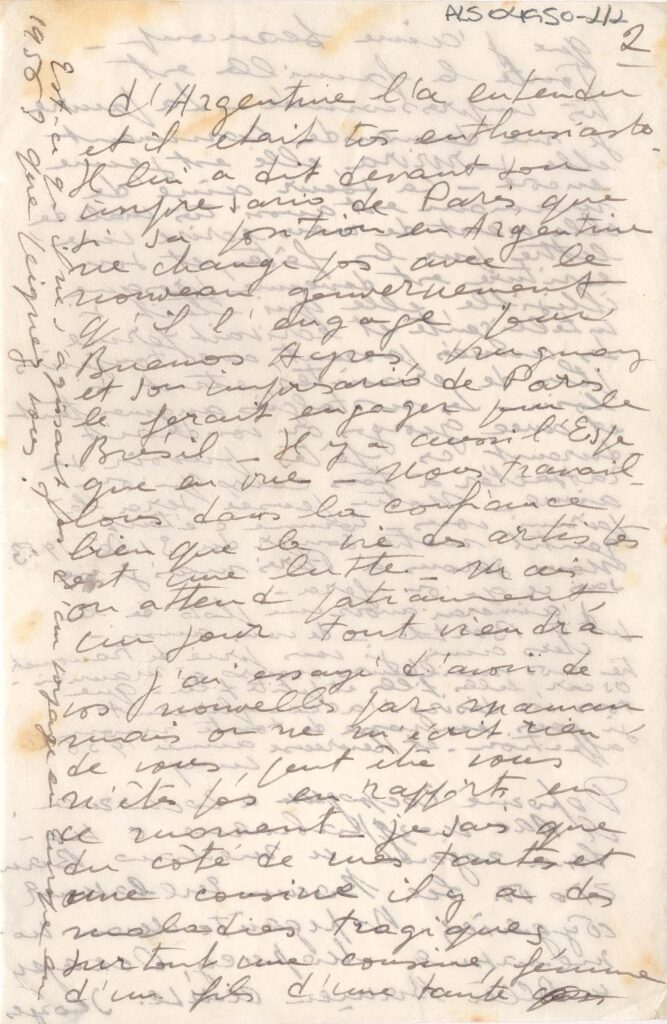 ALS 041950-2/2
2
d'Argentine l'a entendu
et il était très enthousiaste.
Il lui a dit devant son
impresario de Paris, que
si sa position en Argentine
ne change pas avec le
nouveau gouvernement
qu'il l'engage pour
Buenos Ayres, Uruguay
et son imprésario de Paris
le ferait engager pour le
Brésil – Il y a aussi l'Espa
que en vue – Nous travail-
lons dans la confiance
bien que la vie des artistes
est une lutte – mais
on attend patiamment,
un jour tout viendra –
j'ai essayé d'avoir de
vos nouvelles par maman
mais on ne m'écrit rien
de vous, peut être vous
n'êtes pas en rapports en
ce moment – je sais que
du côté de mes tantes et
une cousine il y a des
maladies tragiques,
surtout une cousine, femme
d'un fils d'une tante
Est-ce qu'il ne s'agissait pas d'un voyage en Europe en
1950? que